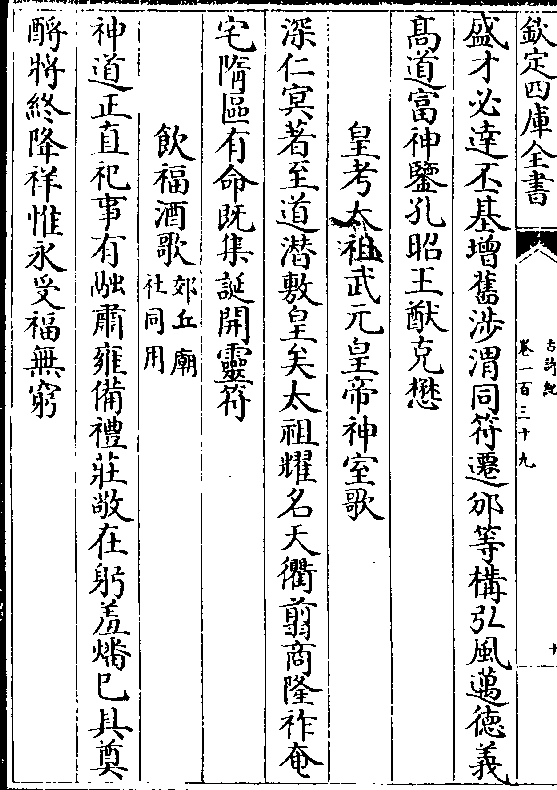 欽定四庫全書
古詩紀
卷一百三十九
十
盛才必達丕基增舊涉渭同符遷邠等構弘風邁德義
髙道富神鑒孔昭王猷克懋
皇考太祖武元皇帝神室歌
深仁㝠著至道潛敷皇矣太祖耀名天衢翦商隆祚奄
宅隋區有命既集誕開靈符
飲福酒歌郊丘廟社同用
神道正直祀事有融肅雍備禮莊敬在躬羞燔已具奠
酹將終降祥惟永受福無窮